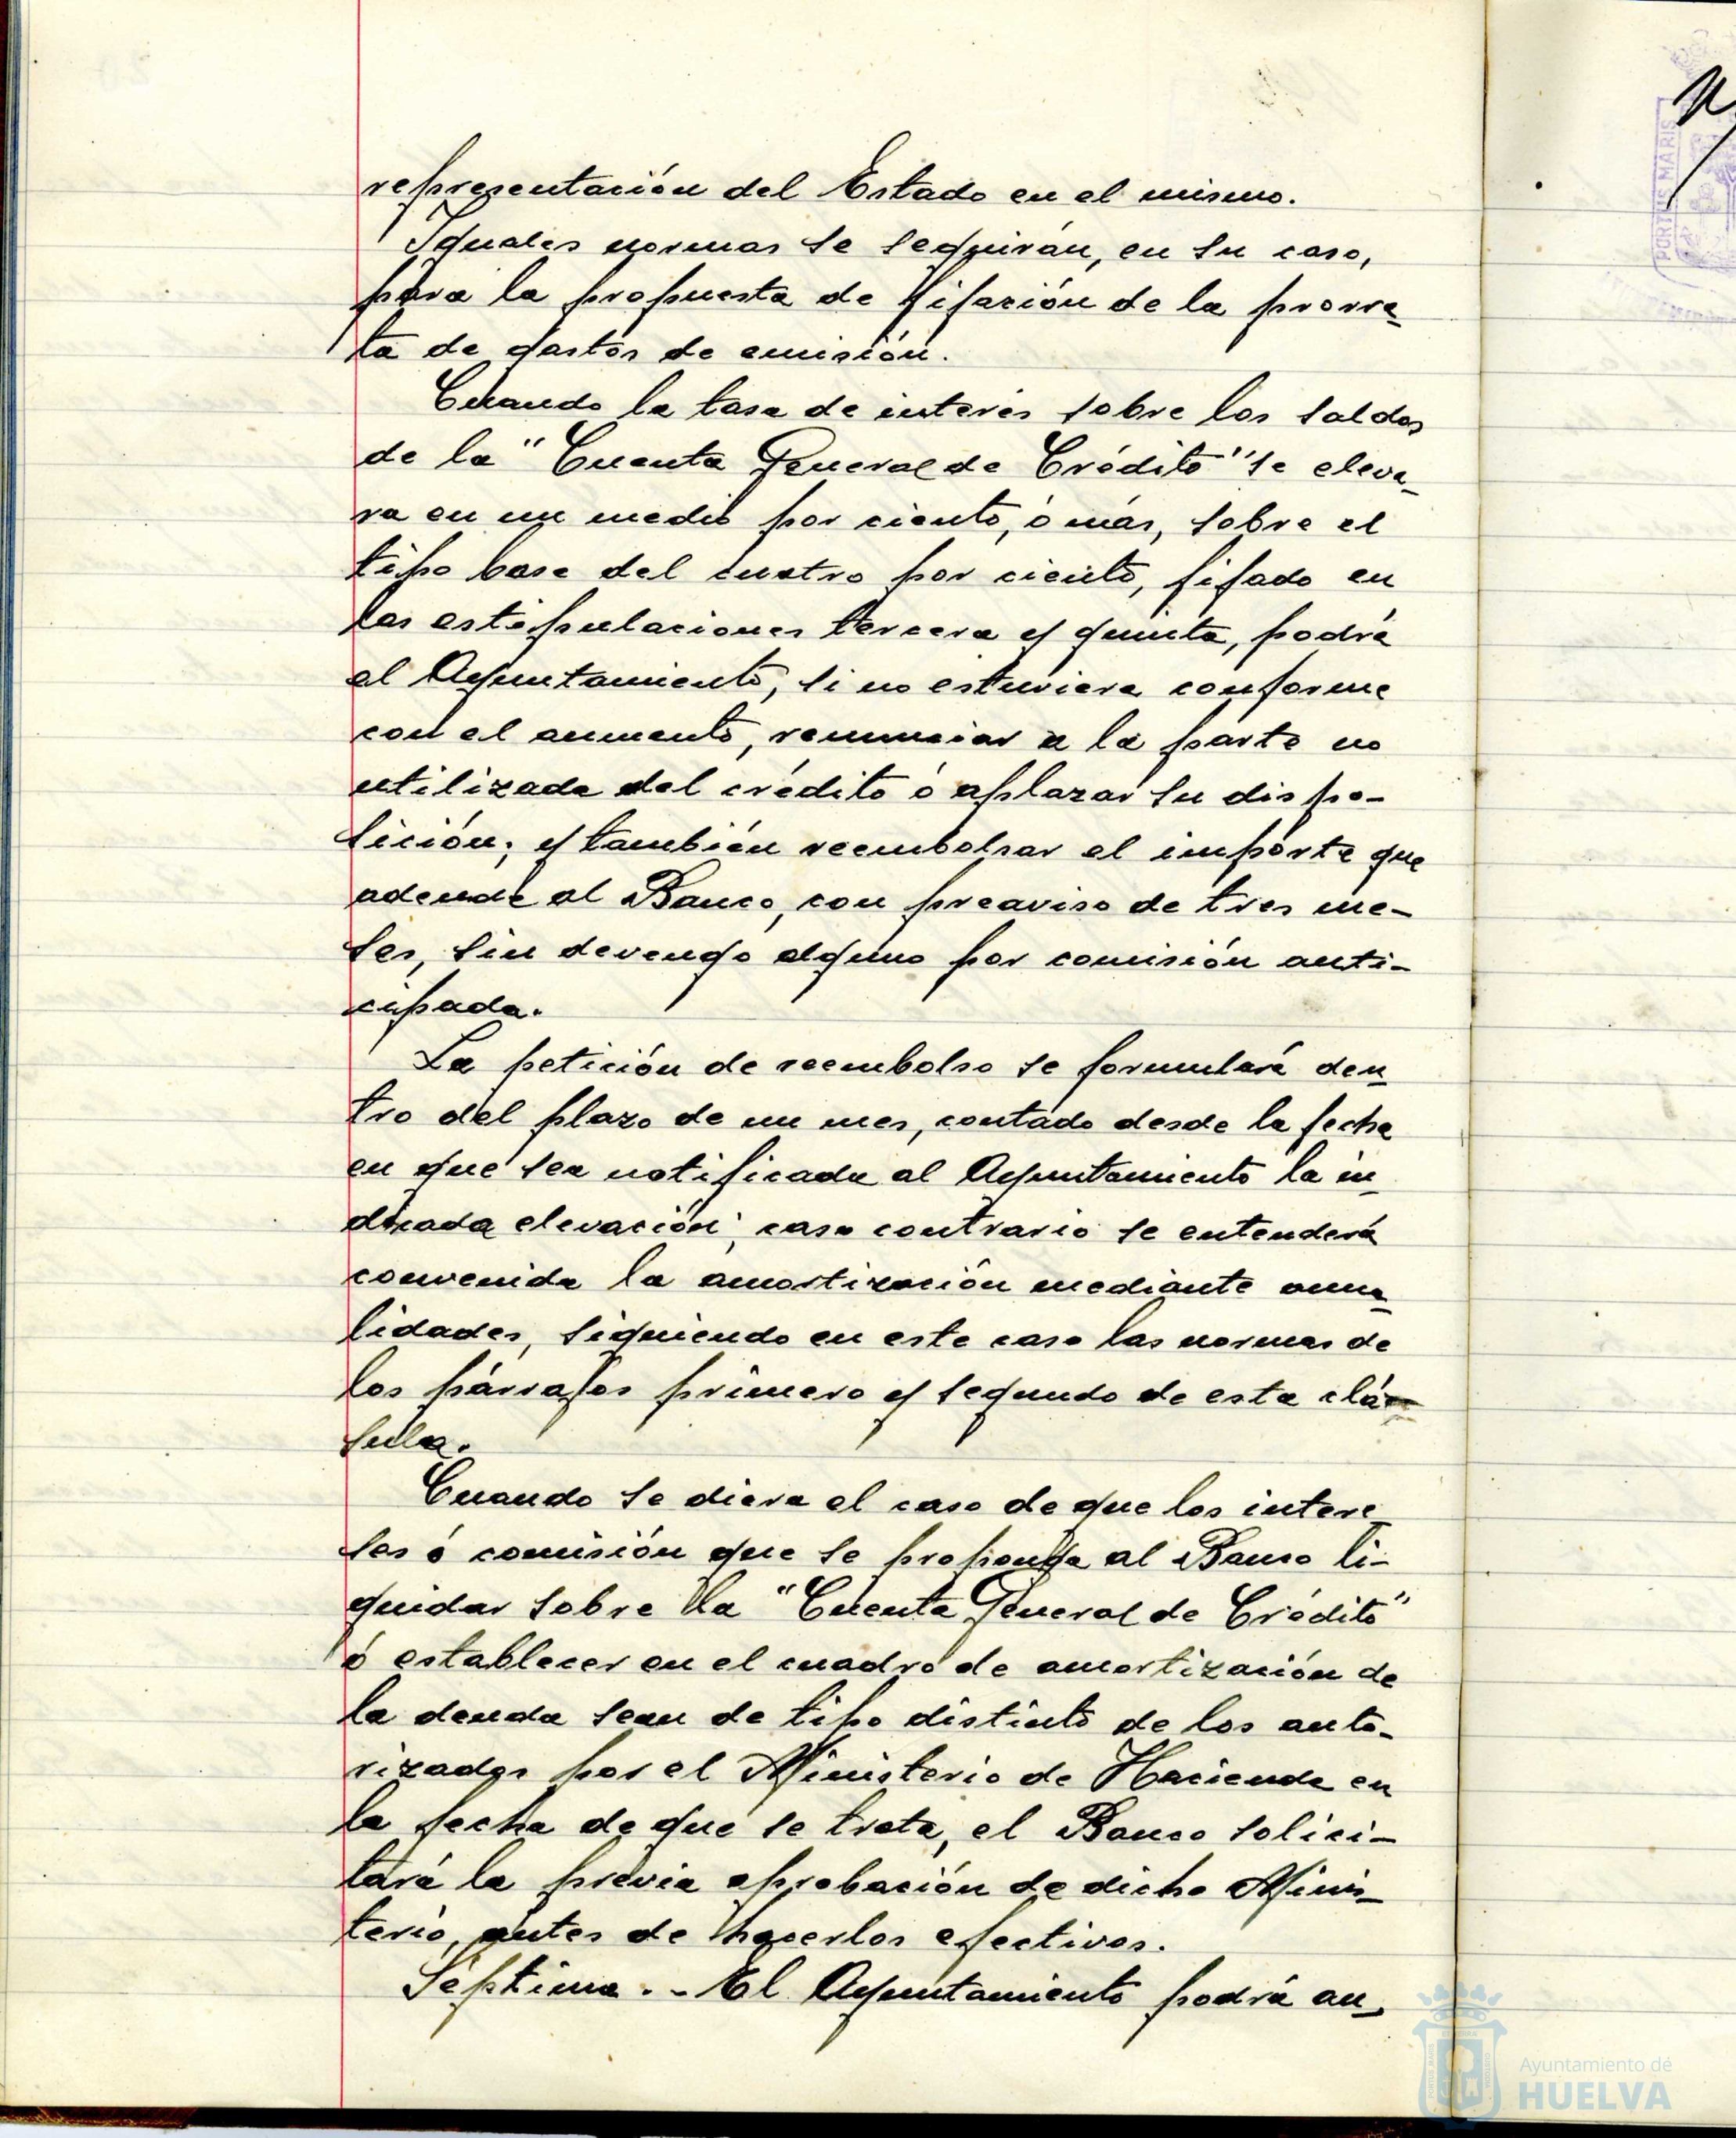 representación del Estado en el mismo.
Iguales normas se seguirán, en su caso,
para la propuesta de fijación de la prorra_
ta de gastos de emisión.
Cuando la tasa de interés sobre los saldos
de la "Cuenta General de Crédito" se eleva_
ra en un medio por ciento, ó más, sobre el
tipo base del cuatro por ciento, fijado en
las estipulaciones tercera y quinta, podrá
el Ayuntamiento, si no estuviera conforme
con el aumento, renunciar a la parte no
utilizada del crédito ó aplazar su dispo-
sición; y también reembolsar el importe que
adeude al Banco, con preaviso de tres me-
ses, sin devengo alguno por comisión anti-
cipada.
La petición de reembolso se formulará den_
tro del plazo de un mes, contado desde la fecha
en que sea notificada al Ayuntamiento la in_
dicada elevación; caso contrario se entenderá
convenida la amortización mediante anua_
lidades, siguiendo en este caso las normas de
los párrafos primero y segundo de esta cláu-
sula.
Cuando se diera el caso de que los intere_
ses ó comisión que se proponga al Banco li-
quidar sobre la "Cuenta General de Crédito"
ó establecer en el cuadro de amortización de
la deuda sean de tipo distinto de los auto-
rizados por el Ministerio de Hacienda en
la fecha de que se trata, el Banco solici-
tará la previa aprobación de dicho Minis_
terio, antes de hacerlos efectivos.
Séptima.- El Ayuntamiento podrá an_
PORTUS MARIS
Ayuntamiento de
HUELVA